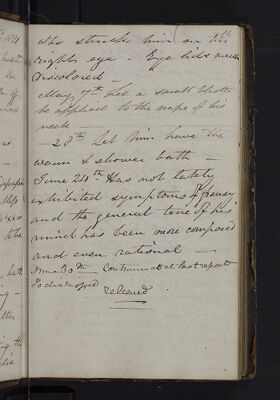 who struck him on his
right eye - Eye lids much
Discolored -
May 7th Let a small blister
be applied to the nape of his
neck
- 20th Let him have the
warm & shower bath -
June 24th Has not lately
exhibited symptoms of frenzy
and the general tone of his
mind has been more composed
and even rational -
June 30th Continues as at last report
Is dismissed
relieved